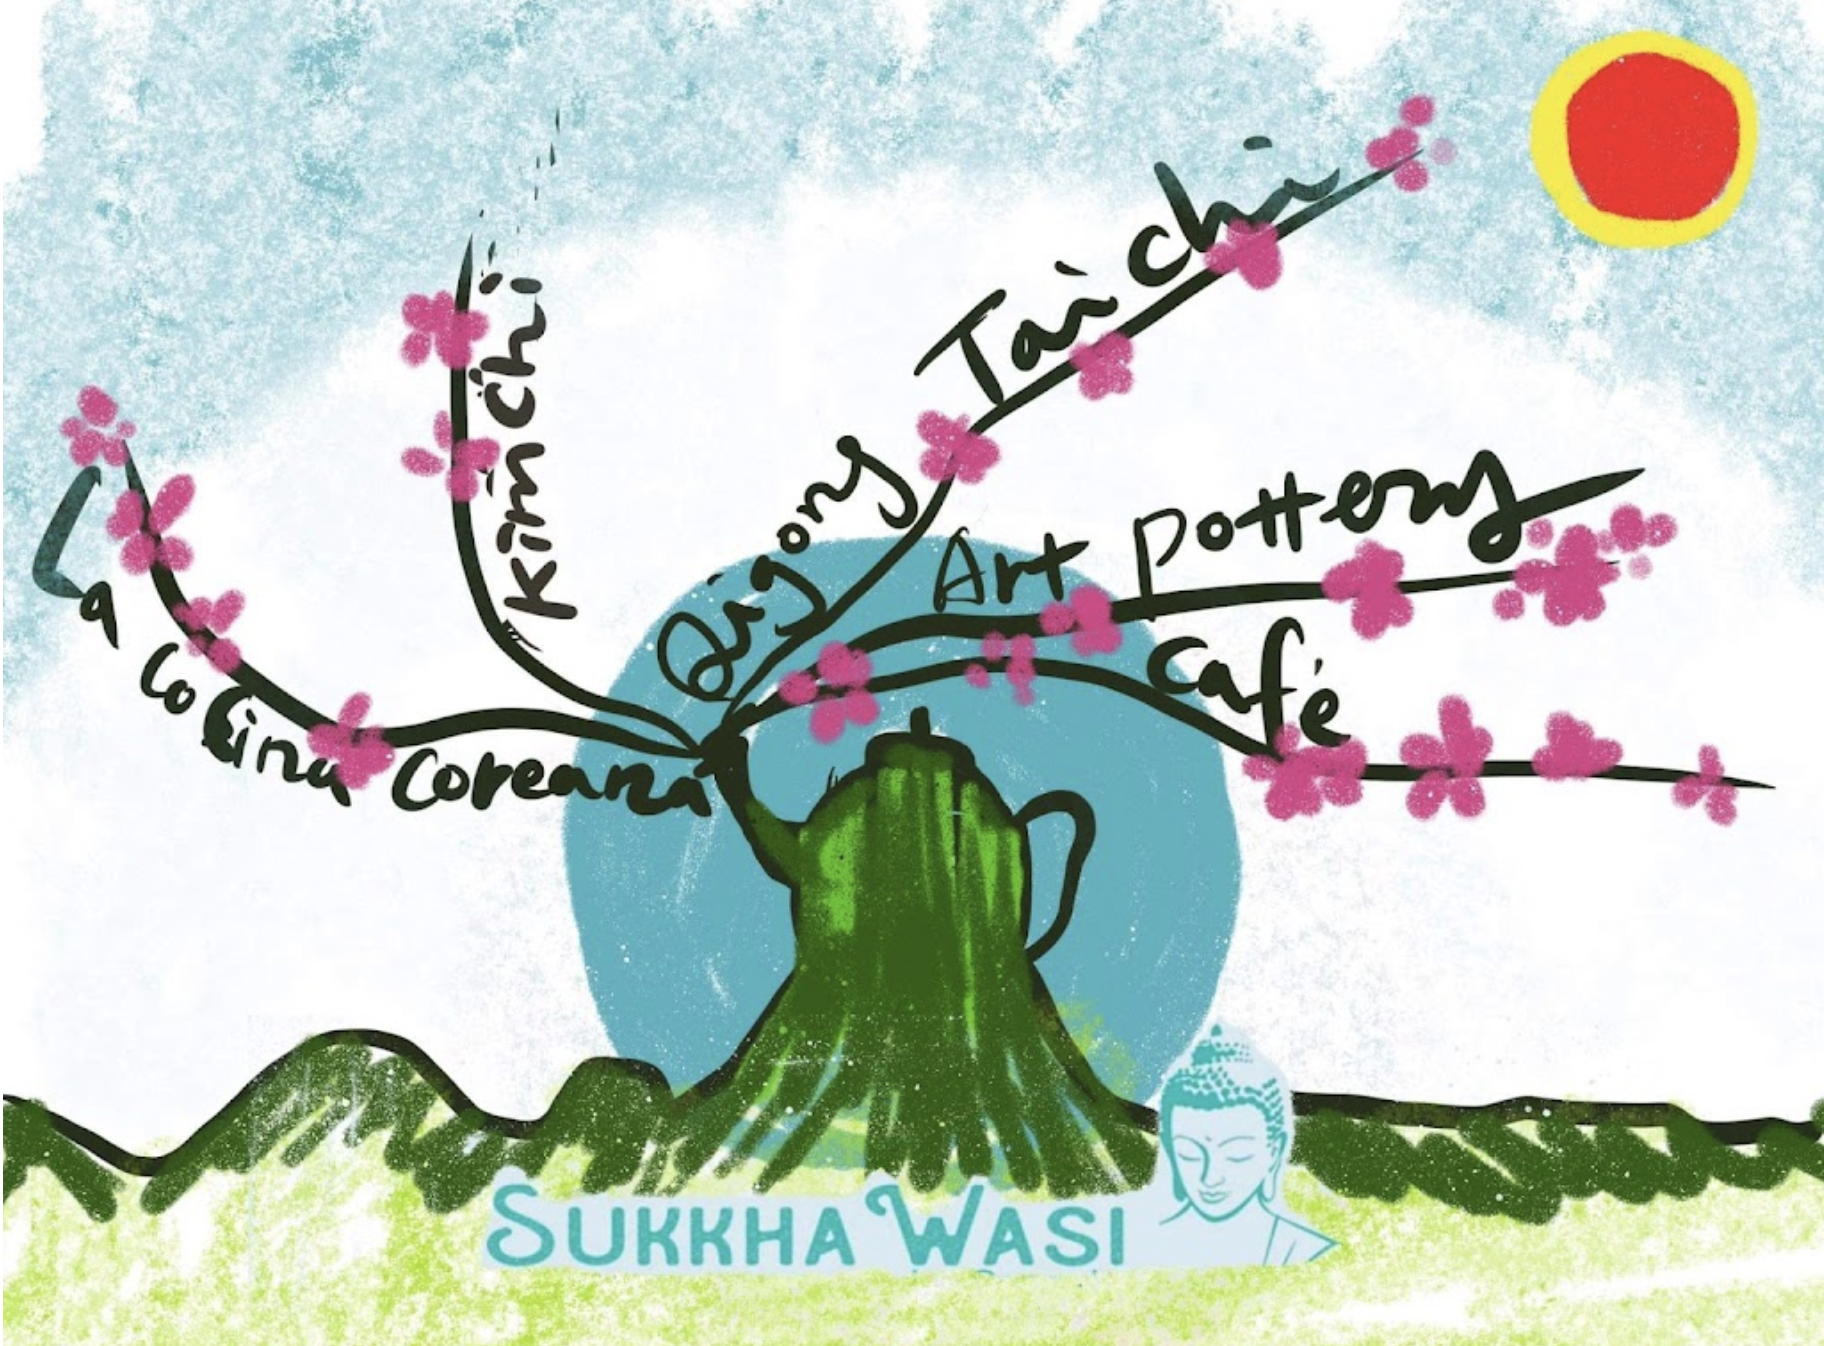 La cocina coreana
Kimchi
Qigong Taichi
Art pottery
café
SUKKHA WASI